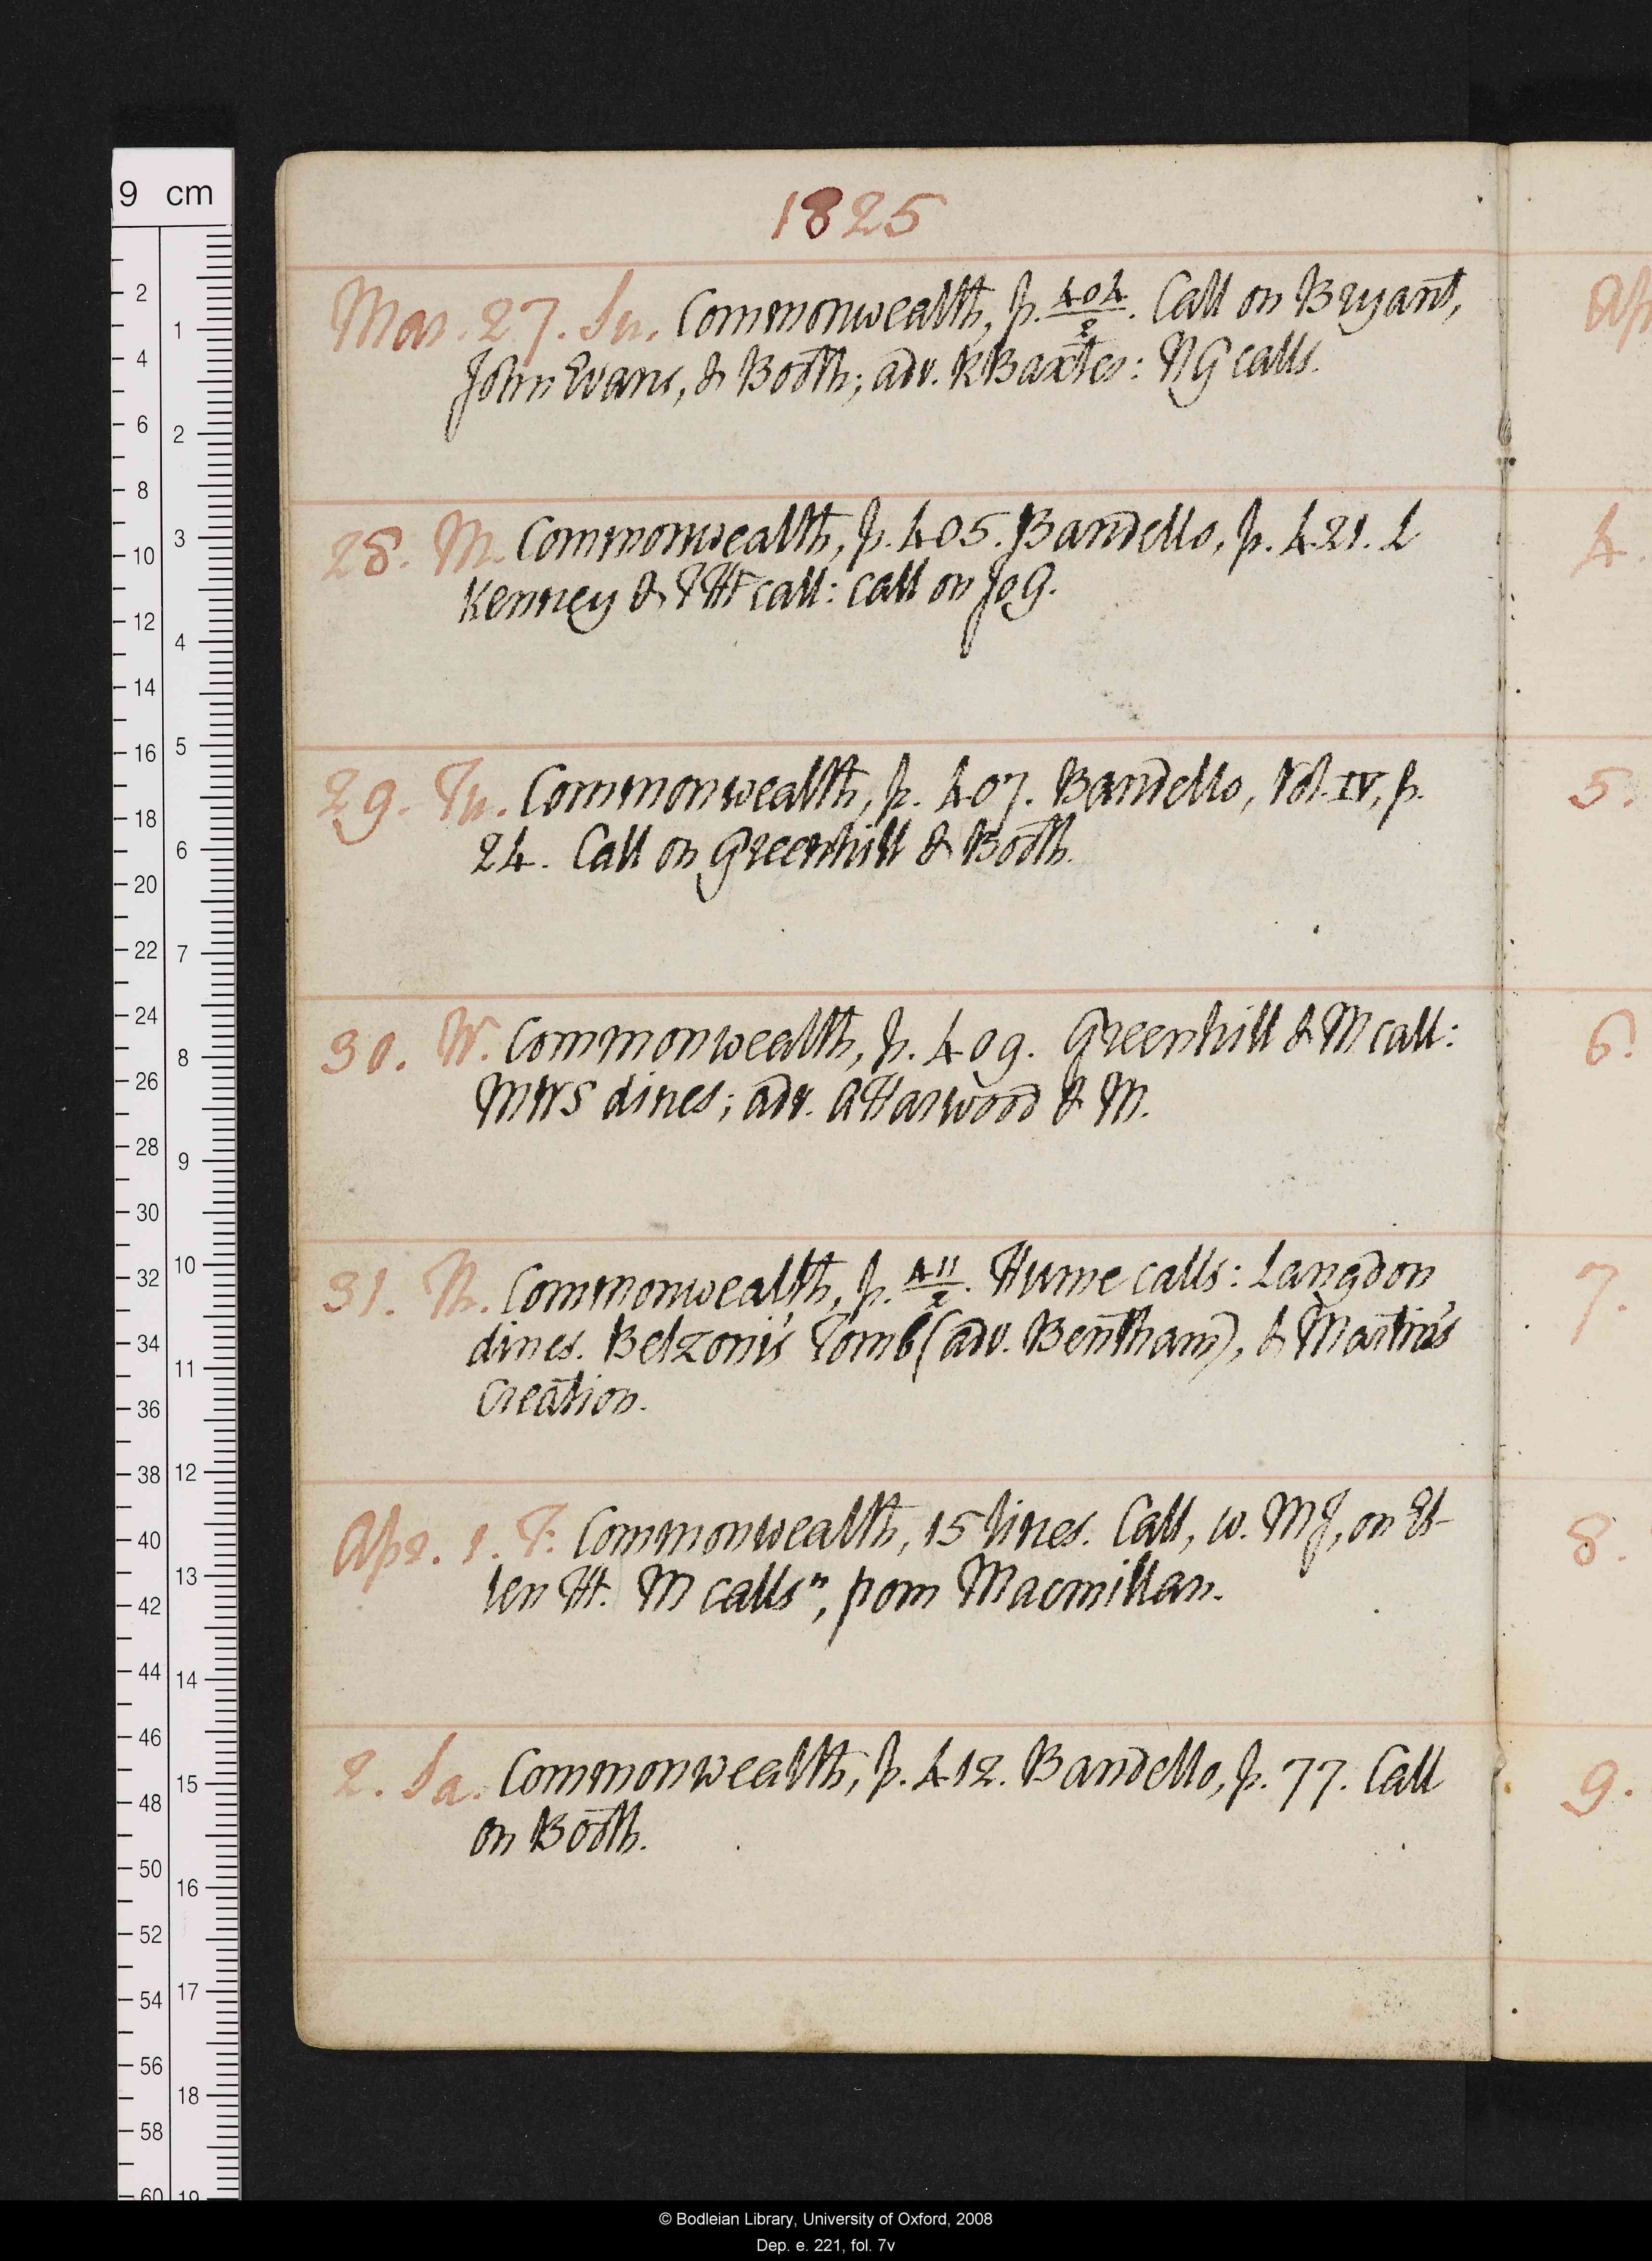 1825
Mar. 27. Su. Commonwealth, p. 404/2. Call on Bryant,
John Evans, & Booth; adv. R Baxter: NG calls.
28. M. Commonwealth, p. 405. Bandello, p. 421. L
Kenney & THt call: call on JoG.
29. Tu. Commonwealth, p. 407. Bandello, Vol. IV, p.
24. Call on Greenhill & Booth.
30. W. Commonwealth, p. 409. Greenhill & M call:
MWS dines; adv. AHarwood & M.
31. Th. Commonwealth, p. 411/2. Hume calls: Langdon
dines. Belzoni's Tomb (adv. Bentham), & Martin's
Creation.
Apr. 1. F. Commonwealth, 15 lines. Call, w. MJ, on El-
len Ht. M calls n, pom Macmillan.
2. Sa. Commonwealth, p. 412. Bandello, p. 77. Call
on Booth.
Ap
4.
5.
6.
7.
8.
9.
9 cm
2 4 6 8 10 12 14 16 18 20 22 24 26 28 30 32 34 36 38 40 42 44 46 48 50 52 54 56 58 60
1 2 3 4 5 6 7 8 9 10 11 12 13 14 15 16 17 18 19
© Bodleian Library, University of Oxford, 2008
Dep. e. 221, fol. 7v